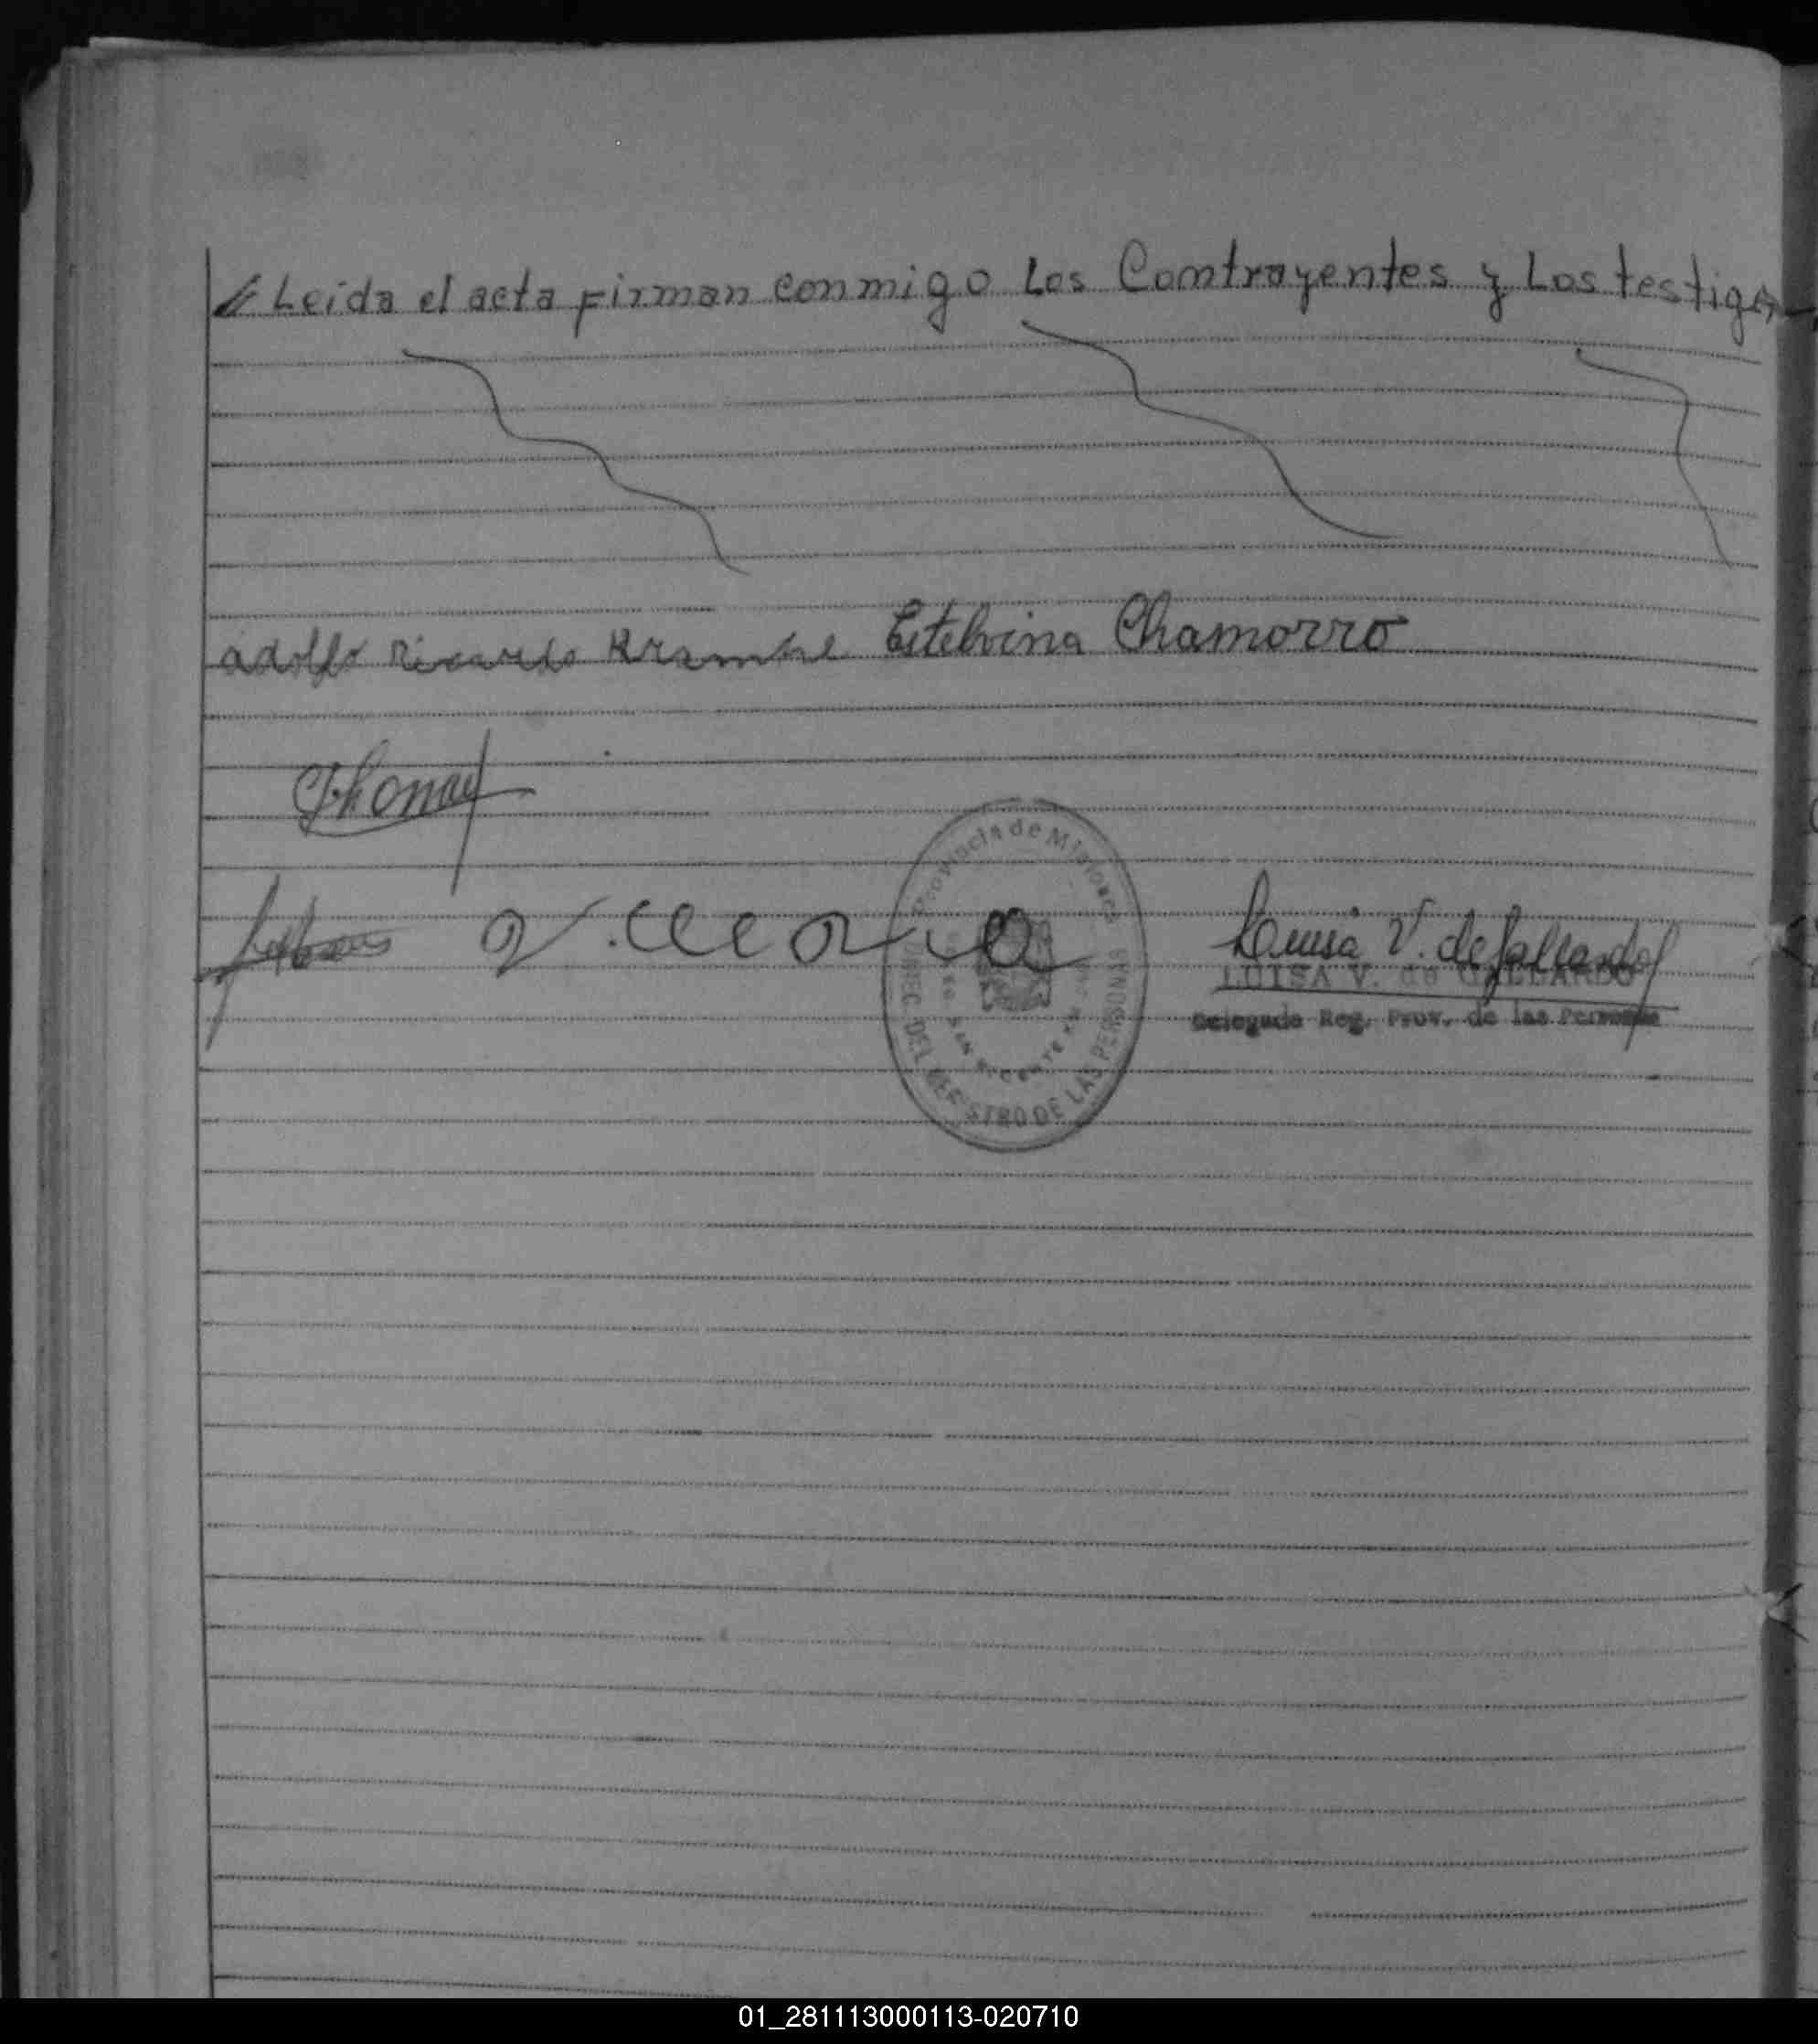 // Leida el acta firman conmigo Los Contrayentes y Los testigos
adolfo Ricardo Estelvina Chamorro
Luisa V. de Gallardo
LUISA V. de GALLARDO
Delegada Reg. Prov. de las Personas
Provincia de Misiones
DIREC. DEL REGISTRO DE LAS PERSONAS
SAN VICENTE
01_281113000113-020710